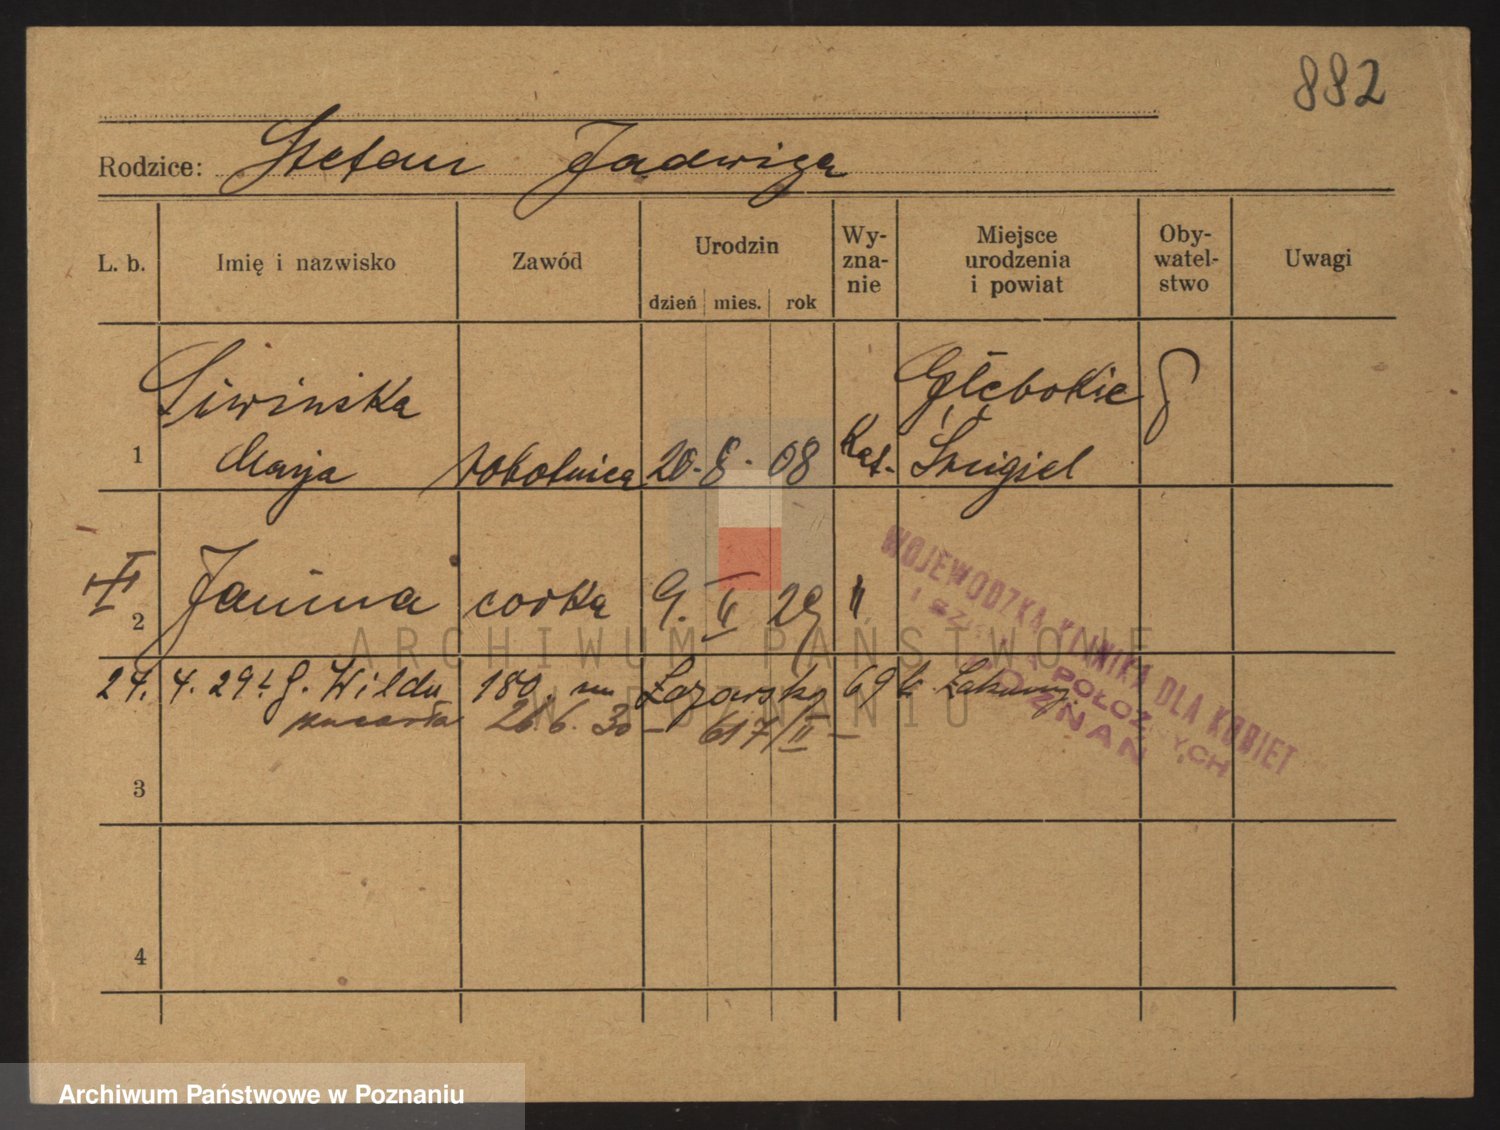 882
Rodzice: Stefan Jadwiga
L. b. Imię i nazwisko Zawód Urodzin dzień mies. rok Wy-zna-nie Miejsce urodzenia i powiat Oby-watel-stwo Uwagi
Siwińska Głębokie
1 Marja robotnica 20. 8. 08 Kat. Śmigiel
2 Janina córka 9. II 29 "
27. 4. 29 r. G. Wilda 180. Łazarska 69
zmarła 26. 6. 30 – 617/II –
3
4
WOJEWÓDZKA KLINIKA DLA KOBIET
I POŁOŻNYCH
POZNAŃ
ARCHIWUM PAŃSTWOWE
W POZNANIU
Archiwum Państwowe w Poznaniu